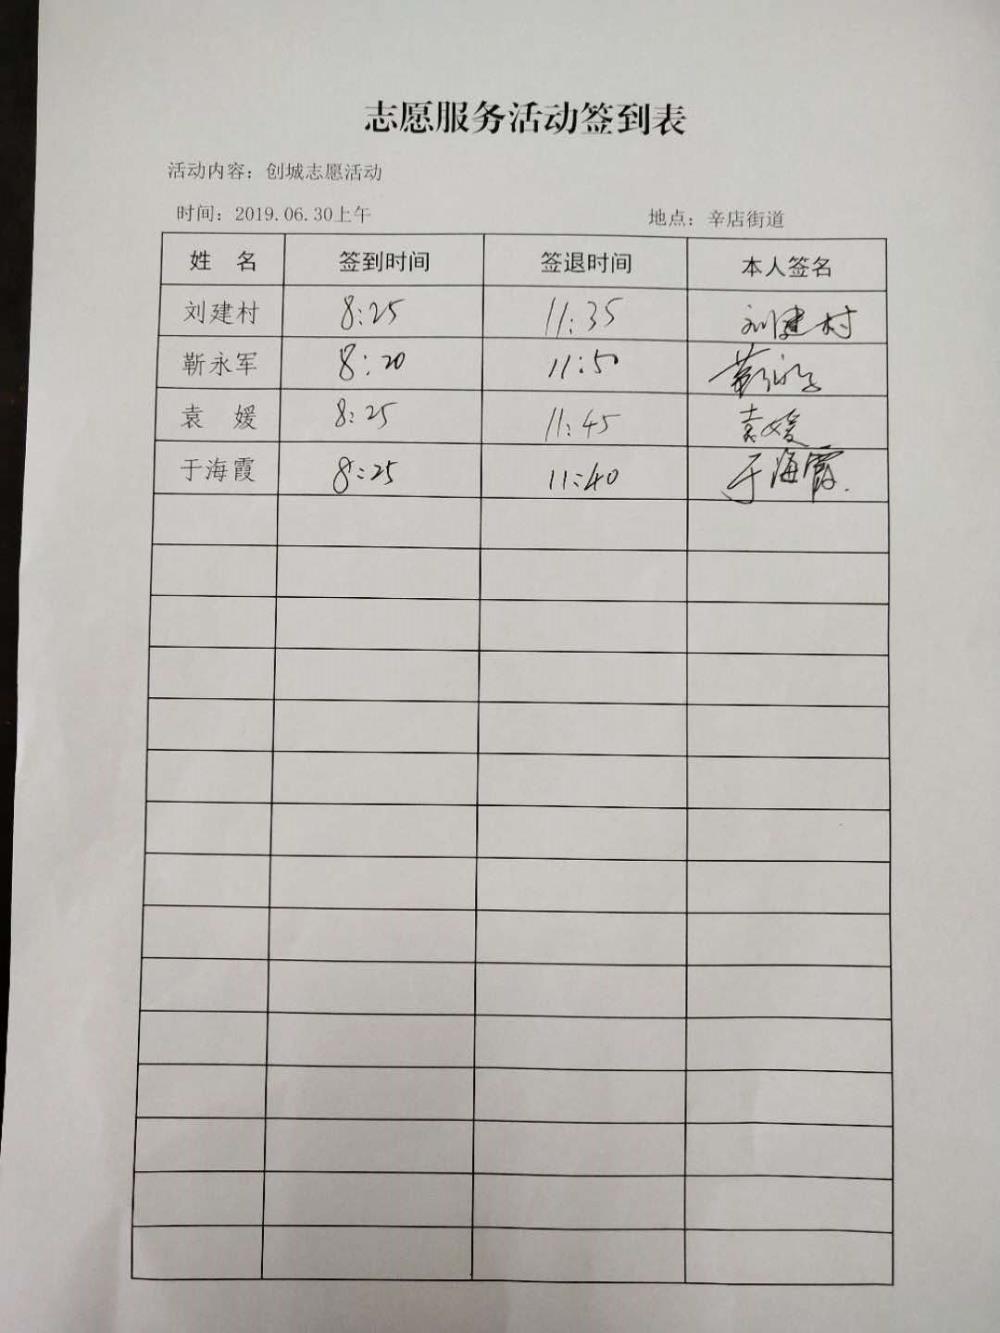 志愿服务活动签到表
活动内容：创城志愿活动
时间：2019.06.30上午 地点：辛店街道
姓 名 签到时间 签退时间 本人签名
刘建村 8:25 11:35 刘建村
靳永军 8:20 11:50 靳永军
袁 媛 8:25 11:45 袁媛
于海霞 8:25 11:40 于海霞.